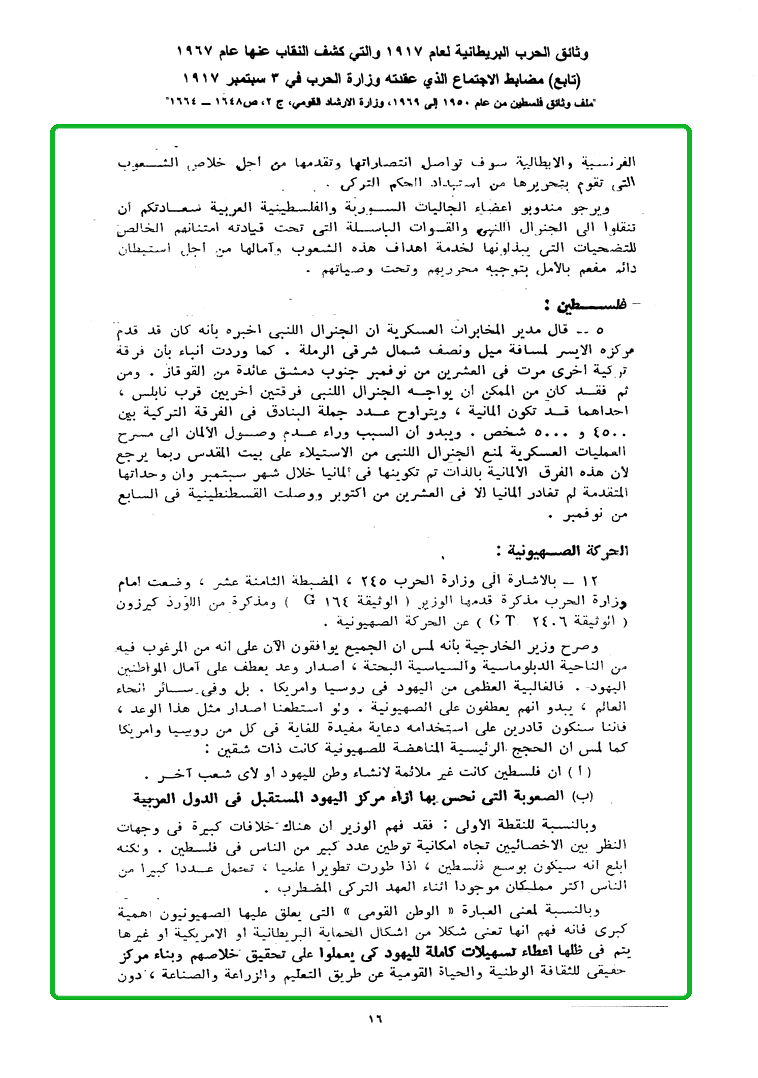 وثائق الحرب البريطانية لعام ١٩١٧ والتي كشف النقاب عنها عام ١٩٦٧
(تابع) مضابط الاجتماع الذي عقدته وزارة الحرب في ٣ سبتمبر ١٩١٧
"ملف وثائق فلسطين من عام ١٩٥٠ إلى ١٩٦٩، وزارة الارشاد القومي، ج ٢، ص١٦٤٨ ــ ١٦٦٤"
الفرنسية والايطالية سوف تواصل انتصاراتها وتقدمها من أجل خلاص الشـــعوب
التى تقوم بتحريرها من استبداد الحكم التركى .
ويرجو مندوبو أعضاء الجاليات الســورية والفلسطينية العربية ســعادتكم أن
تنقلوا الى الجنرال اللنبى والقوات الباسـلة التى تحت قيادته امتنانهم الخالص
للتضحيات التى يبذلونها لخدمة أهداف هذه الشعوب وآمالها من أجل استيطان
دائم مفعم بالأمل بتوجيه محرريهم وتحت وصياتهم .
– فلســـطين :
٥ ــ قال مدير المخابرات العسكرية ان الجنرال اللنبى أخبره بأنه كان قد قدم
مركزه الأيسر لمسافة ميل ونصف شمال شرقى الرملة . كما وردت أنباء بأن فرقة
تركية أخرى مرت فى العشرين من نوفمبر جنوب دمشق عائدة من القوقاز . ومن
ثم فقــد كان من الممكن أن يواجــه الجنرال اللنبى فرقتين أخريين قرب نابلس ،
احداهما قــد تكون ألمانية ، ويتراوح عــدد جملة البنادق فى الفرقة التركية بين
٤٥٠٠ و ٥٠٠٠ شخص . ويبدو أن السبب وراء عــدم وصــول الألمان الى مسرح
العمليات العسكرية لمنع الجنرال اللنبى من الاستيلاء على بيت المقدس ربما يرجع
لأن هذه الفرق الألمانية بالذات تم تكوينها فى ألمانيا خلال شهر سبتمبر وان وحداتها
المتقدمة لم تغادر ألمانيا الا فى العشرين من أكتوبر ووصلت القسطنطينية فى السابع
من نوفمبر .
الحركة الصــهيونية :
١٢ ــ بالاشارة الى وزارة الحرب ٢٤٥ ، المضبطة الثامنة عشر ، وضعت أمام
وزارة الحرب مذكرة قدمها الوزير ( الوثيقة ١٦٤ G ) ومذكرة من اللورد كيرزون
( الوثيقة ٢٤٠٦ GT ) عن الحركة الصهيونية .
وصرح وزير الخارجية بأنه لمس ان الجميع يوافقون الآن على أنه من المرغوب فيه
من الناحية الدبلوماسية والسياسية البحتة ، اصدار وعد يعطف على آمال المواطنين
اليهود . فالغالبية العظمى من اليهود فى روسيا وأمريكا . بل وفى ســائر أنحاء
العالم ، يبدو أنهم يعطفون على الصهيونية . ولو استطعنا اصدار مثل هذا الوعد ،
فاننا سنكون قادرين على استخدامه دعاية مفيدة للغاية فى كل من روسيا وأمريكا
كما لمس ان الحجج الرئيسية المناهضة للصهيونية كانت ذات شقين :
( أ ) ان فلسطين كانت غير ملائمة لانشاء وطن لليهود أو لأى شعب آخــر .
(ب) الصعوبة التى نحس بها ازاء مركز اليهود المستقبل فى الدول العربية
وبالنسبة للنقطة الأولى : فقد فهم الوزير ان هناك خلافات كبيرة فى وجهات
النظر بين الاخصائيين تجاه امكانية توطين عدد كبير من الناس فى فلسطين . ولكنه
أبلغ انه سيكون بوسع فلسطين ، اذا طورت تطويرا علميا ، تحمل عــددا كبيرا من
الناس أكثر مما كان موجودا أثناء العهد التركى المضطرب .
وبالنسبة لمعنى العبارة « الوطن القومى » التى يعلق عليها الصهيونيون أهمية
كبرى فانه فهم أنها تعنى شكلا من أشكال الحماية البريطانية أو الأمريكية أو غيرها
يتم فى ظلها اعطاء تسهيلات كاملة لليهود كى يعملوا على تحقيق خلاصهم وبناء مركز
حقيقى للثقافة الوطنية والحياة القومية عن طريق التعليم والزراعة والصناعة ، دون
١٦